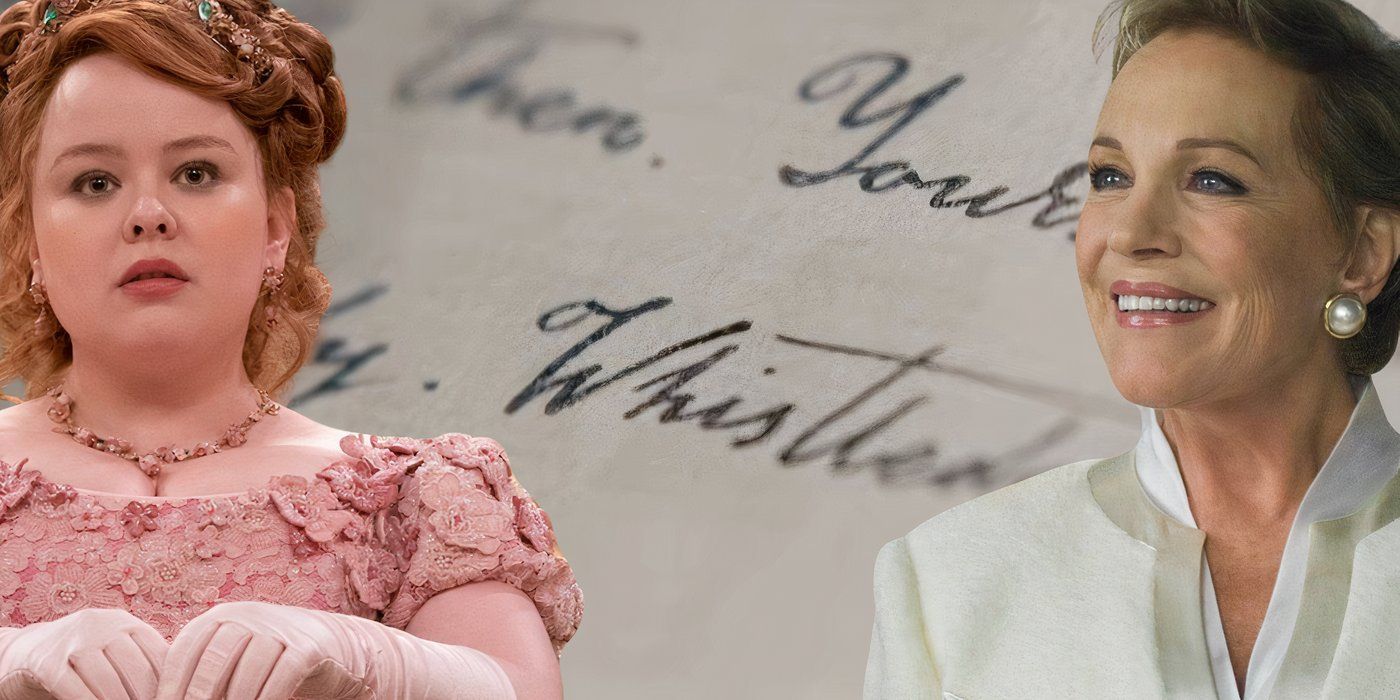 then. Yours
y. Whistled